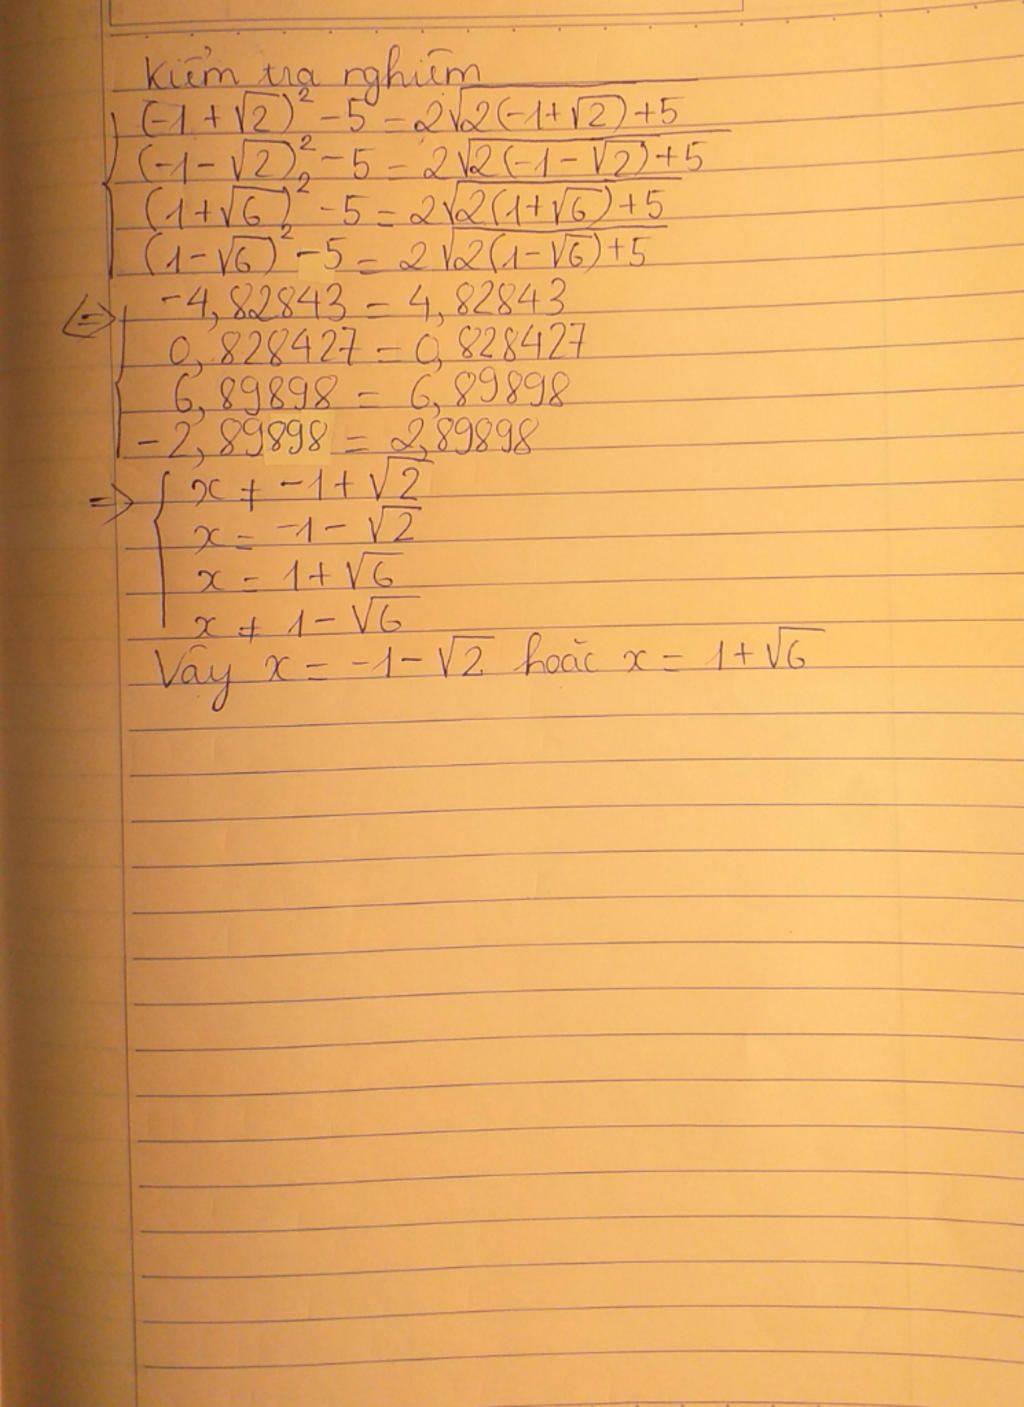 Kiểm tra nghiệm
(-1+√2)² -5 = 2√2(-1+√2)+5
(-1-√2)² -5 = 2√2(-1-√2)+5
(1+√6)² -5 = 2√2(1+√6)+5
(1-√6)² -5 = 2√2(1-√6)+5
⇔ -4,82843 = 4,82843
0,828427 = 0,828427
6,89898 = 6,89898
-2,89898 = 2,89898
=> x ≠ -1+√2
x = -1-√2
x = 1+√6
x ≠ 1-√6
Vậy x = -1-√2 hoặc x = 1+√6